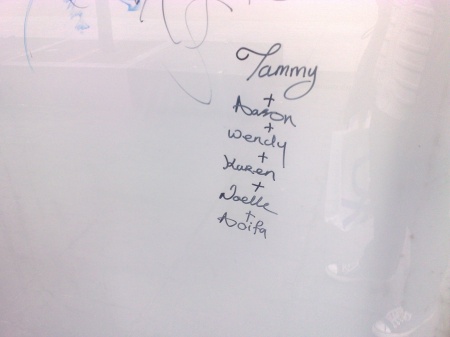 Tammy
+
Aaron
+
Wendy
+
Karen
+
Noelle
+
Aoifa